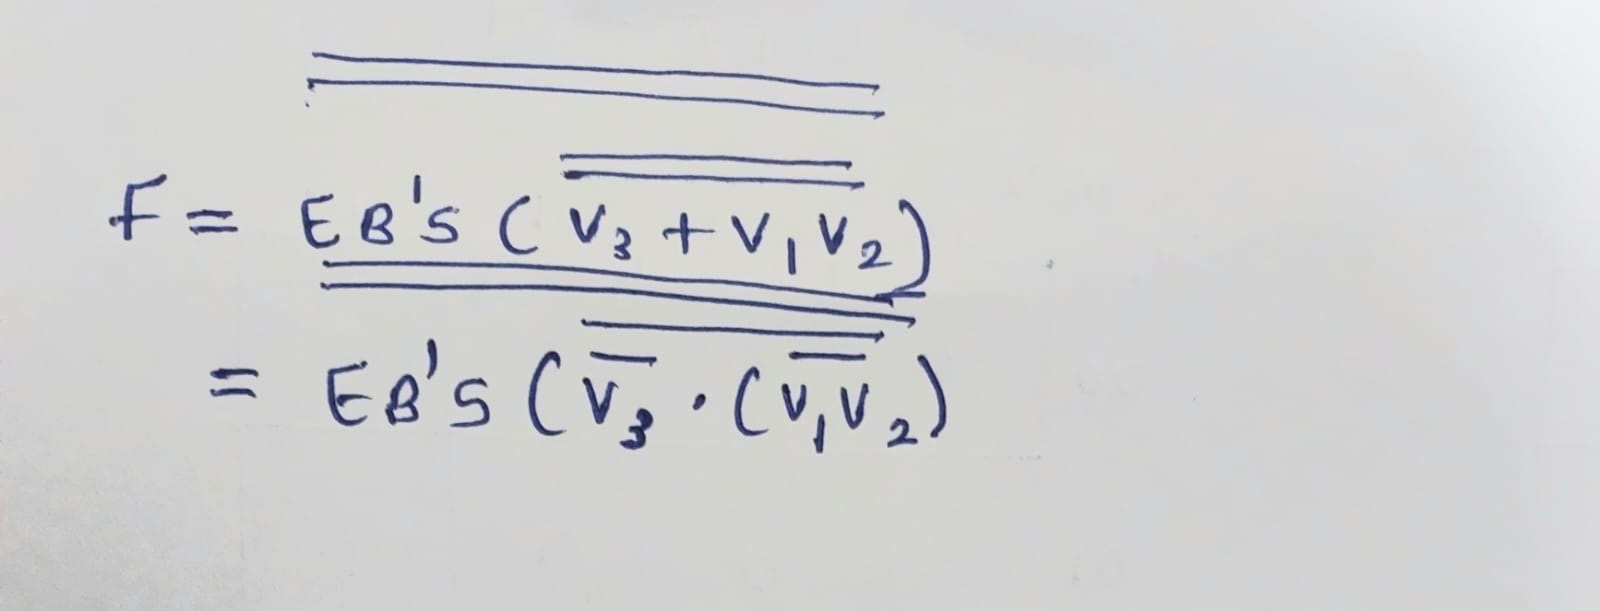 F = EB'S ( V̿₃ + V₁V₂ )
= EB'S ( V̅₃ · (V₁V₂)